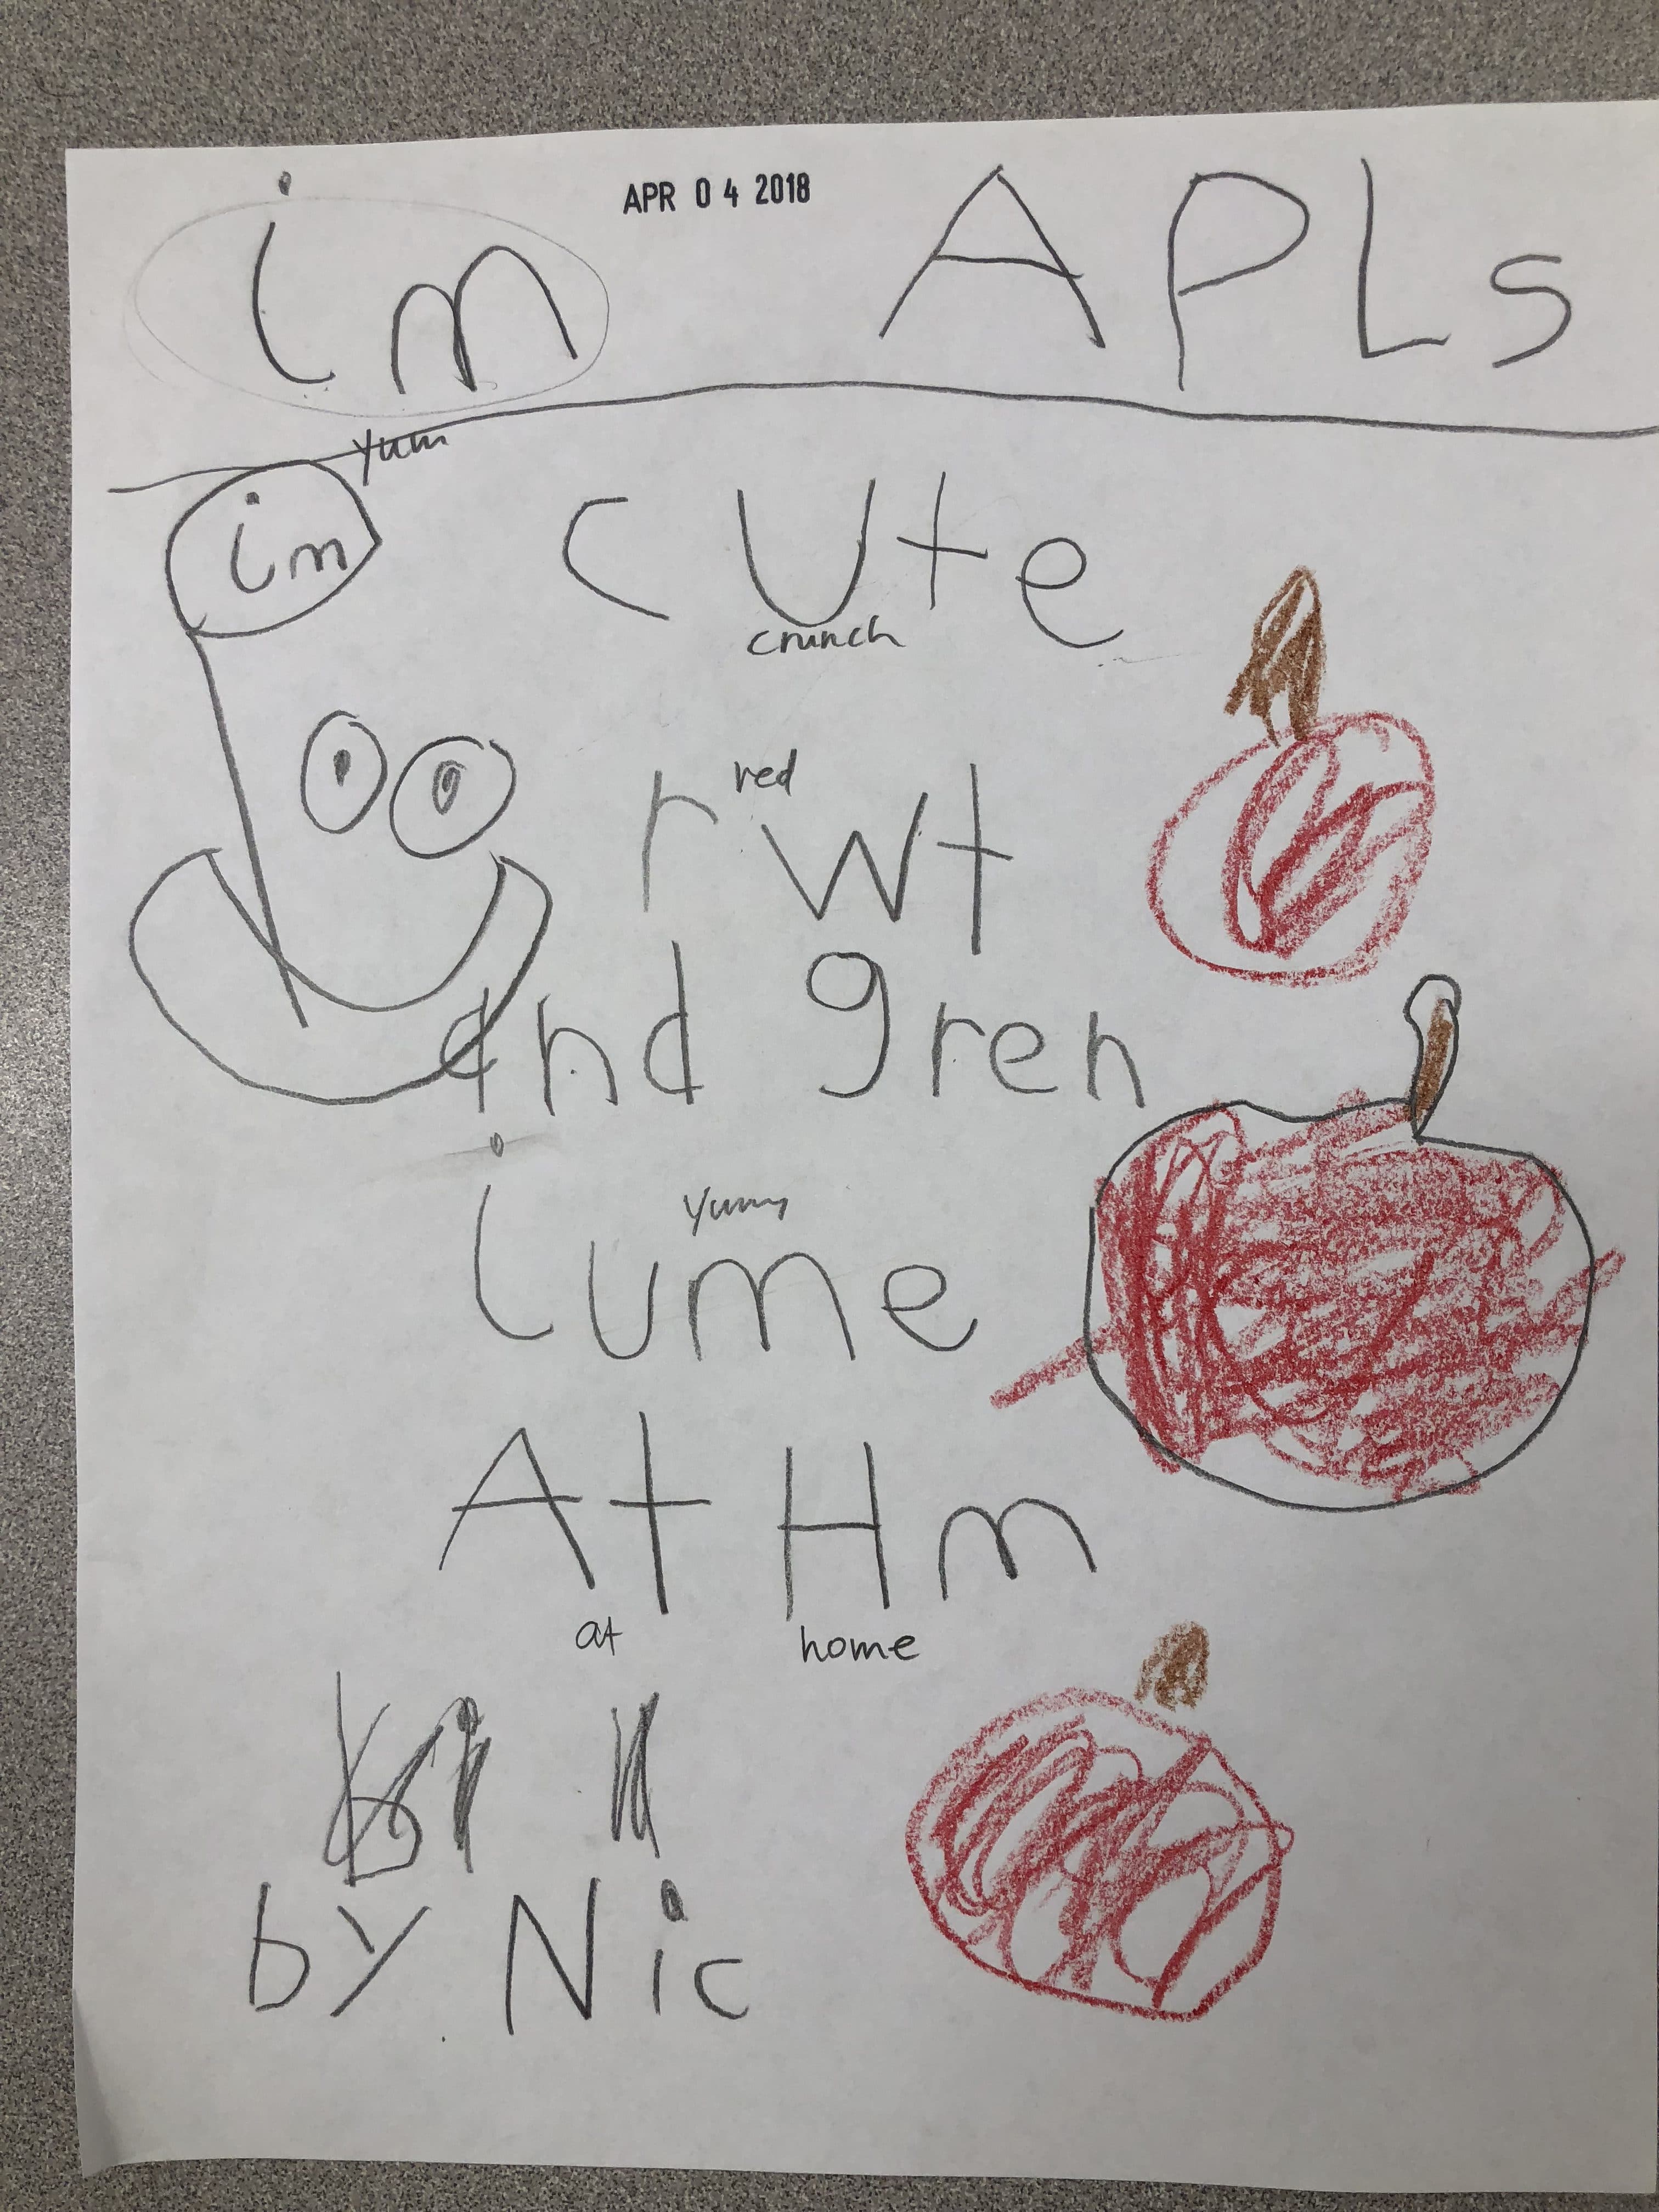 APR 04 2018
im APLs
yum
im cUte
crunch
red
rwt
and gren
yumy
iume
At Hm
at home
by Nic